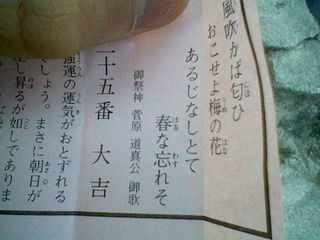 風吹かば匂ひ
おこせよ梅の花
あるじなしとて
春な忘れそ
御祭神 菅原 道真公 御歌
二十五番 大吉
強運の運気がおとずれる
しょう。まさに朝日が
昇るが如しでありま